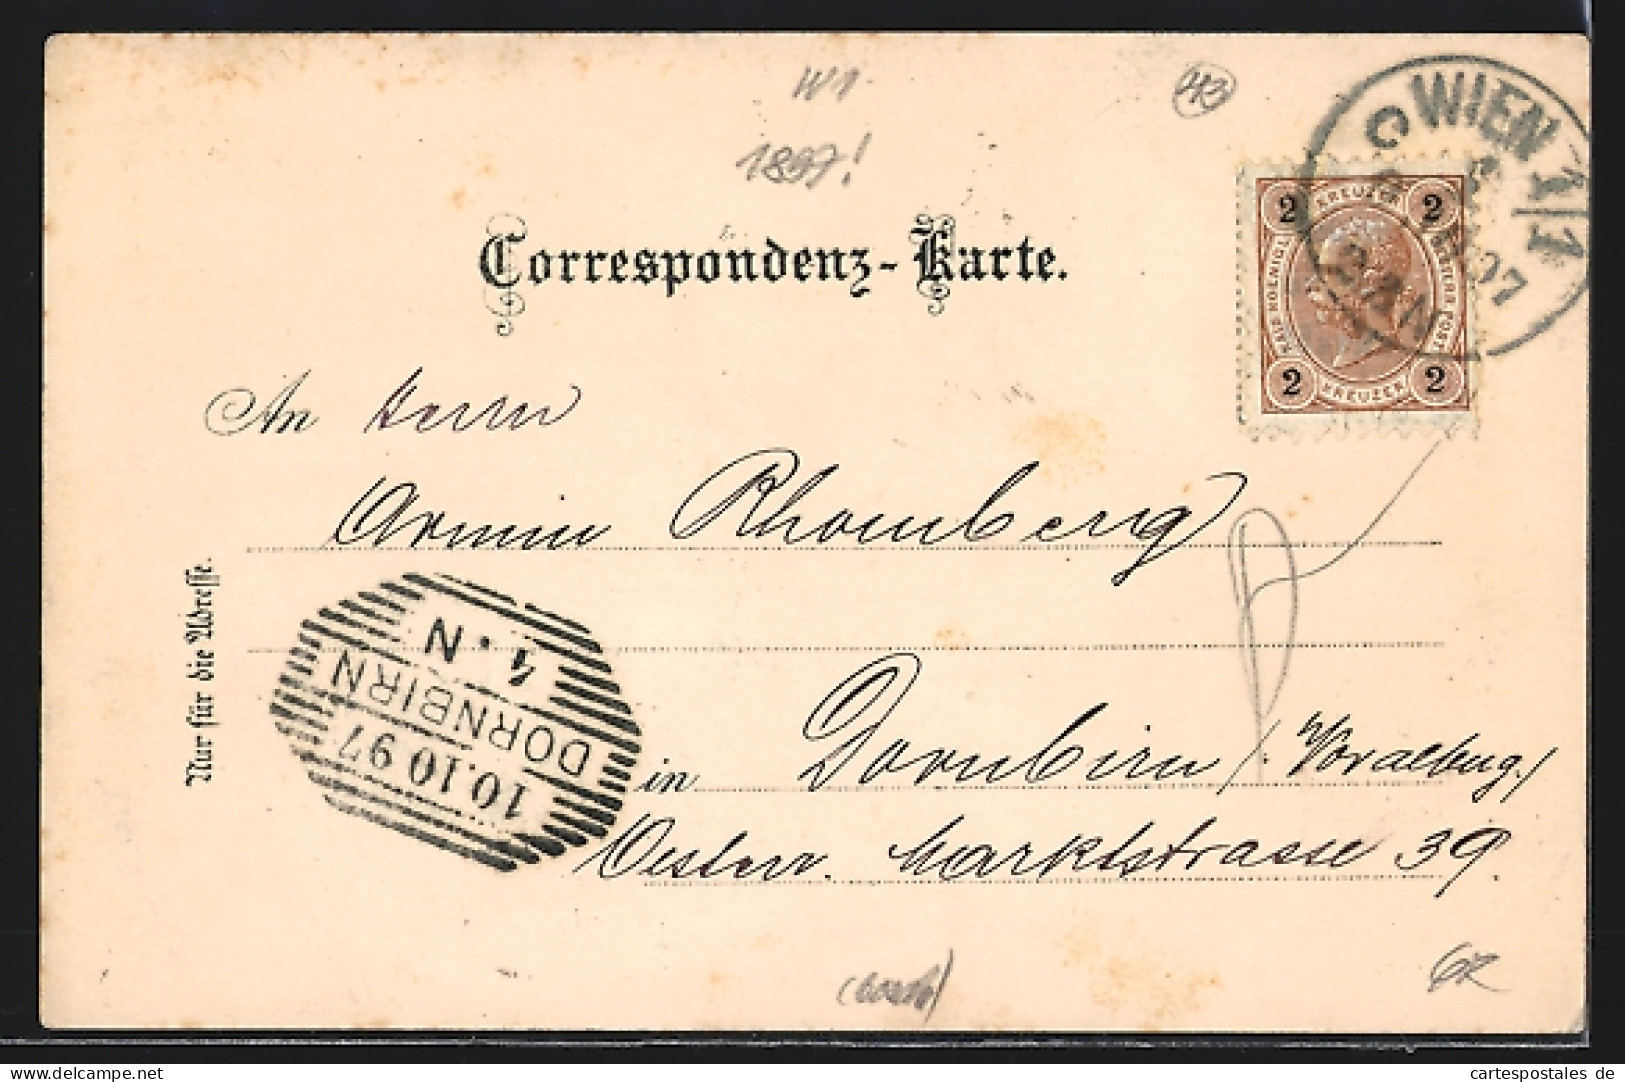 W1
43
1897!
WIEN 1/1
97
2 KREUZER 2
KAIS KOENIGL
OESTERR. POST
2 KREUZER 2
Correspondenz-Karte.
An Herrn
Armin Rhomberg
Nur für die Adresse.
4. N
DORNBIRN
10.10 97
in Dornbirn /: Voralbug./
Oesterr. Marktstrasse 39.
cartespostales de